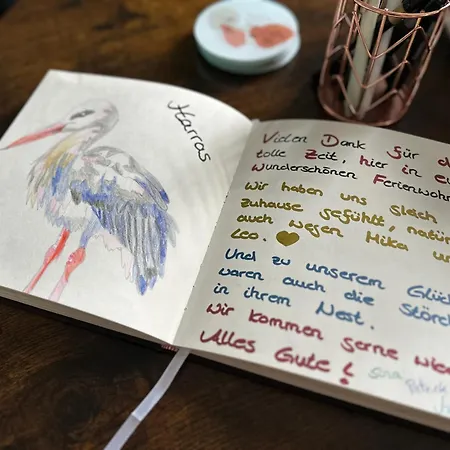 Harras
Vielen Dank für d
tolle Zeit, hier in ei
wunderschönen Ferienwohn
Wir haben uns gleich
zuhause gefühlt, natür
auch wegen Mika un
Leo.
Und zu unserem Glüc
waren auch die Störc
in ihrem Nest.
Wir kommen gerne wied
Alles Gute!